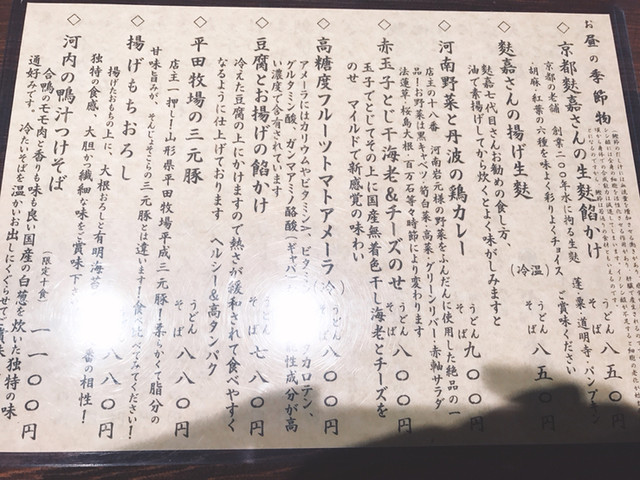 お昼の季節物
◇京都麩嘉さんの生麩餡かけ
京都の老舗 創業二〇〇年水に拘る生麩 蓬・粟・道明寺・パンプキン
・胡麻・紅葉の六種を味よく彩りよくチョイス ご賞味ください
(冷温)
うどん
そば
八五〇円
◇麩嘉さんの揚げ生麩
麩嘉七代目さんお勧めの食し方
油で素揚げしてから炊くとよく味がしみますと
うどん
そば
八五〇円
◇河南野菜と丹波の鶏カレー
店主の十八番 河南岩元様の野菜をふんだんに使用した絶品の一
品!お野菜は黒キャベツ・筍白菜・高菜・グリーンリバー・赤軸サラダ
法蓮草・桜島大根・百万石等々時節により変わります
うどん
そば
九〇〇円
◇赤玉子とじ干海老&チーズのせ
玉子でとじてその上に国産無着色干し海老とチーズを
のせ マイルドで新感覚の味わい
うどん
そば
八〇〇円
◇高糖度フルーツトマトアメーラ
(冷)
アメーラにはカリウムやビタミン
カロテン、
グルタミン酸、ガンマアミノ酪酸(ギャバ
性成分が高
い濃度で含有されています
うどん
そば
八〇〇円
◇豆腐とお揚げの餡かけ
冷えた豆腐の上にかけますので熱さが緩和されて食べやすく
なるように仕上げております ヘルシー&高タンパク
うどん
そば
七八〇円
◇平田牧場の三元豚
店主一押し!山形県平田牧場平成三元豚!柔らかくて脂分の
甘味旨みが、そんじょそこらの三元豚とは違います!食べ比べてみてください!
うどん
そば
八八〇円
◇揚げもちおろし
揚げたおもちの上に、大根おろしと有明海苔
番の相性!
独特の食感、大胆かつ繊細な味をご賞味下さい
八八〇円
◇河内の鴨汁つけそば
(限定十食)
合鴨のモモ肉と香りも味も良い国産の白葱を炊いた独特の味
通好みです。冷たいそばを温かいお出しにくぐらせて
一一〇〇円